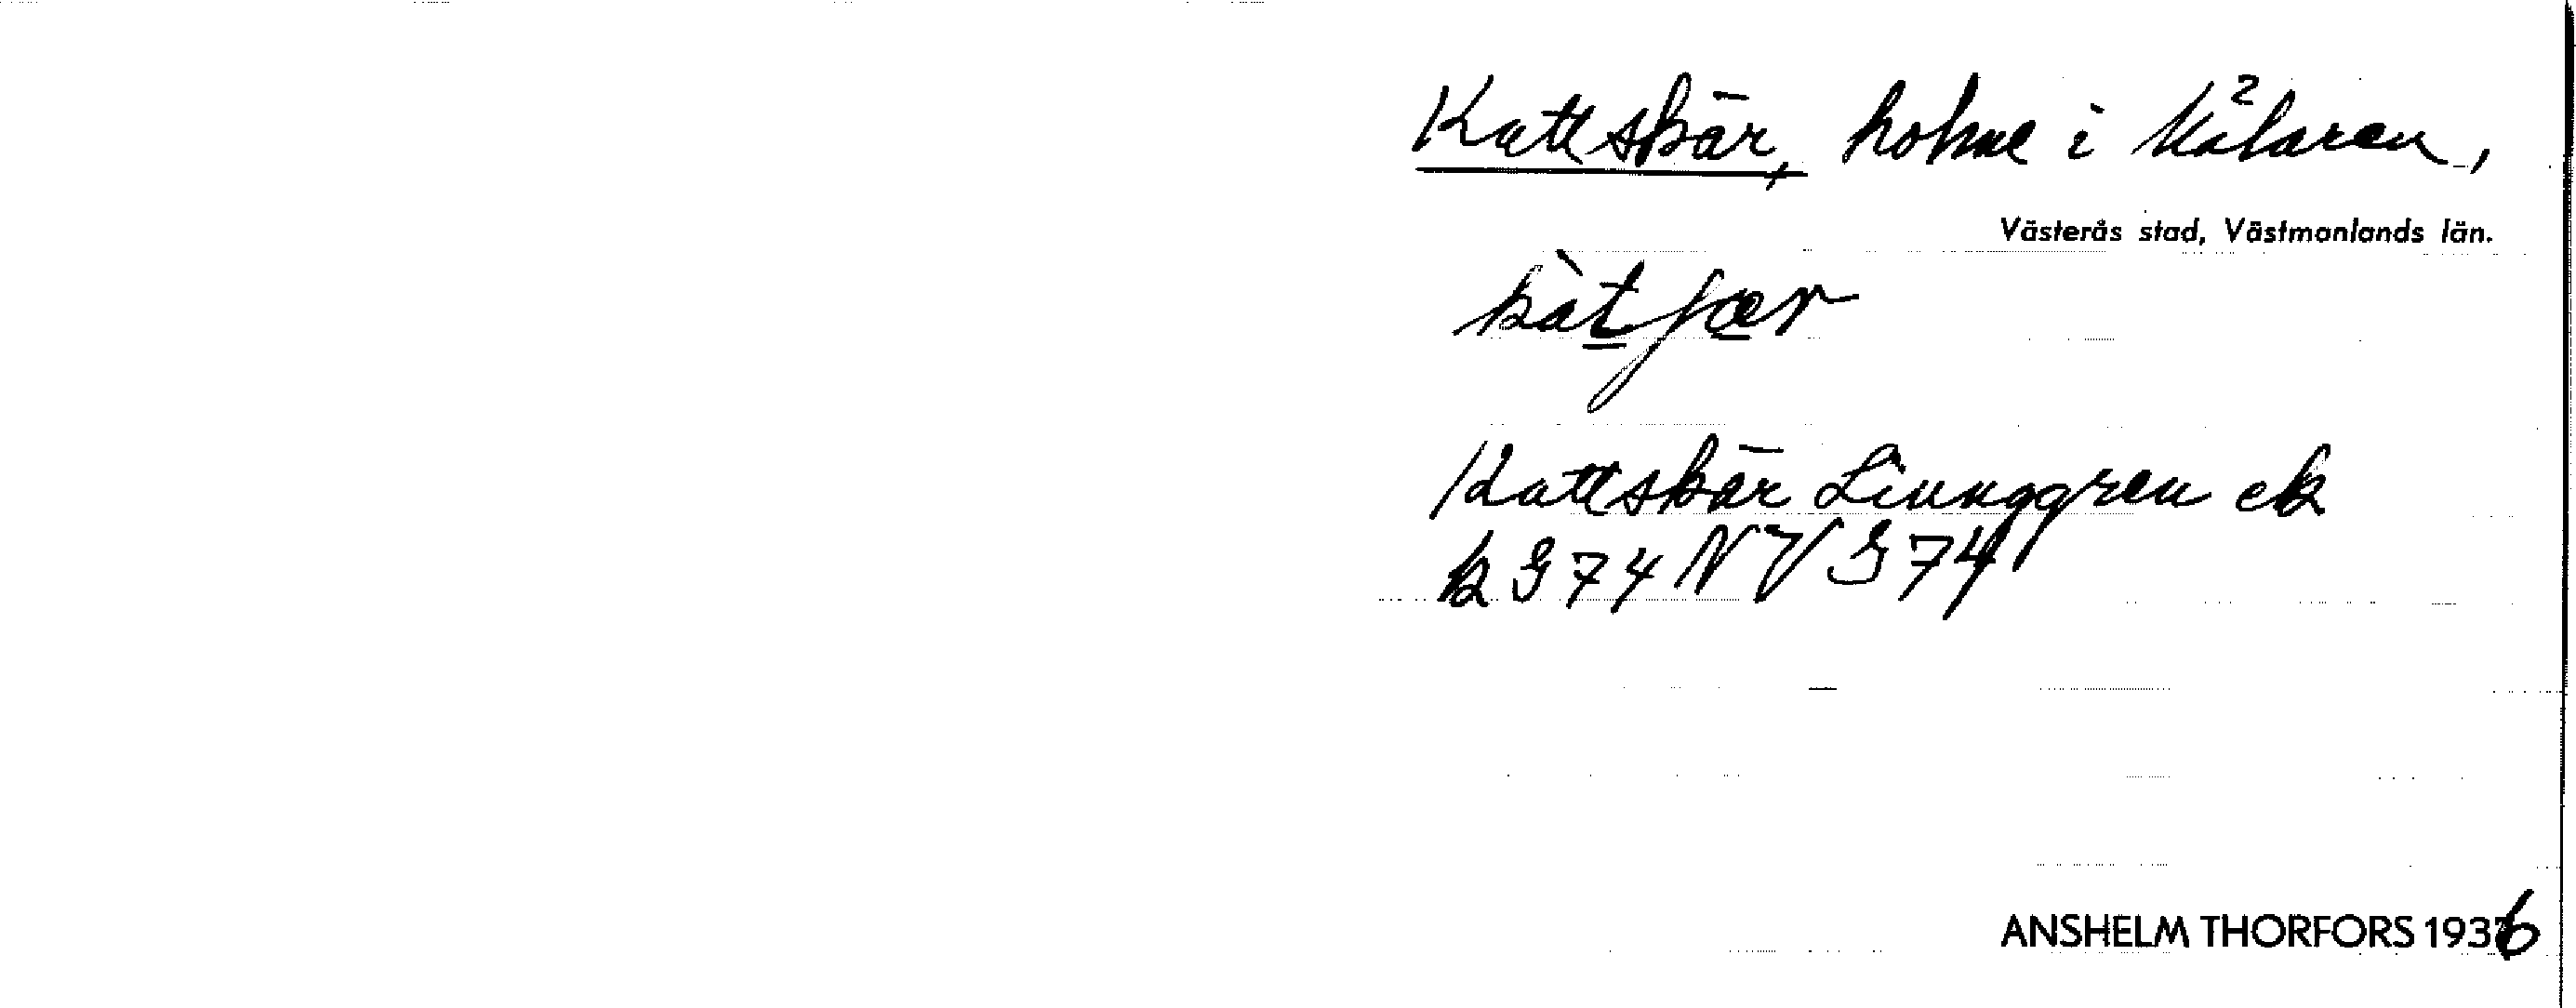 Kattskär, holme i Mälaren,
Västerås stad, Västmanlands län.
kàtʃær
Kattskär Ljunggren ek
k G 74 NV G 74
ANSHELM THORFORS 1936